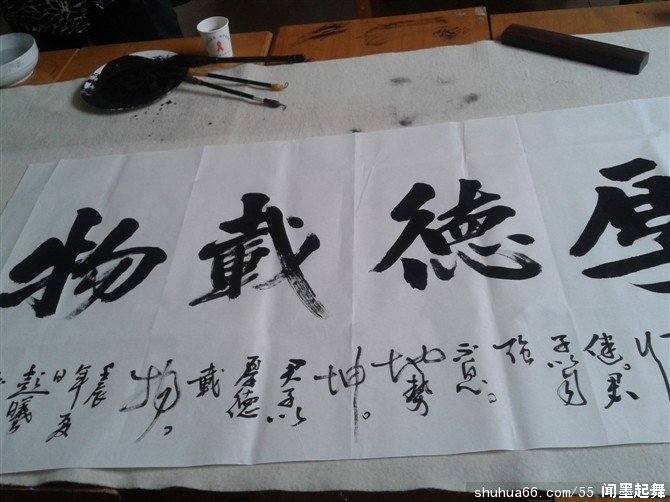 厚德載物
行
健。君
子以自
强
不息。
地勢
坤。
君子以
厚德
載
物。
壬辰
年夏
日
彭曦
shuhua66.com/55 闻墨起舞